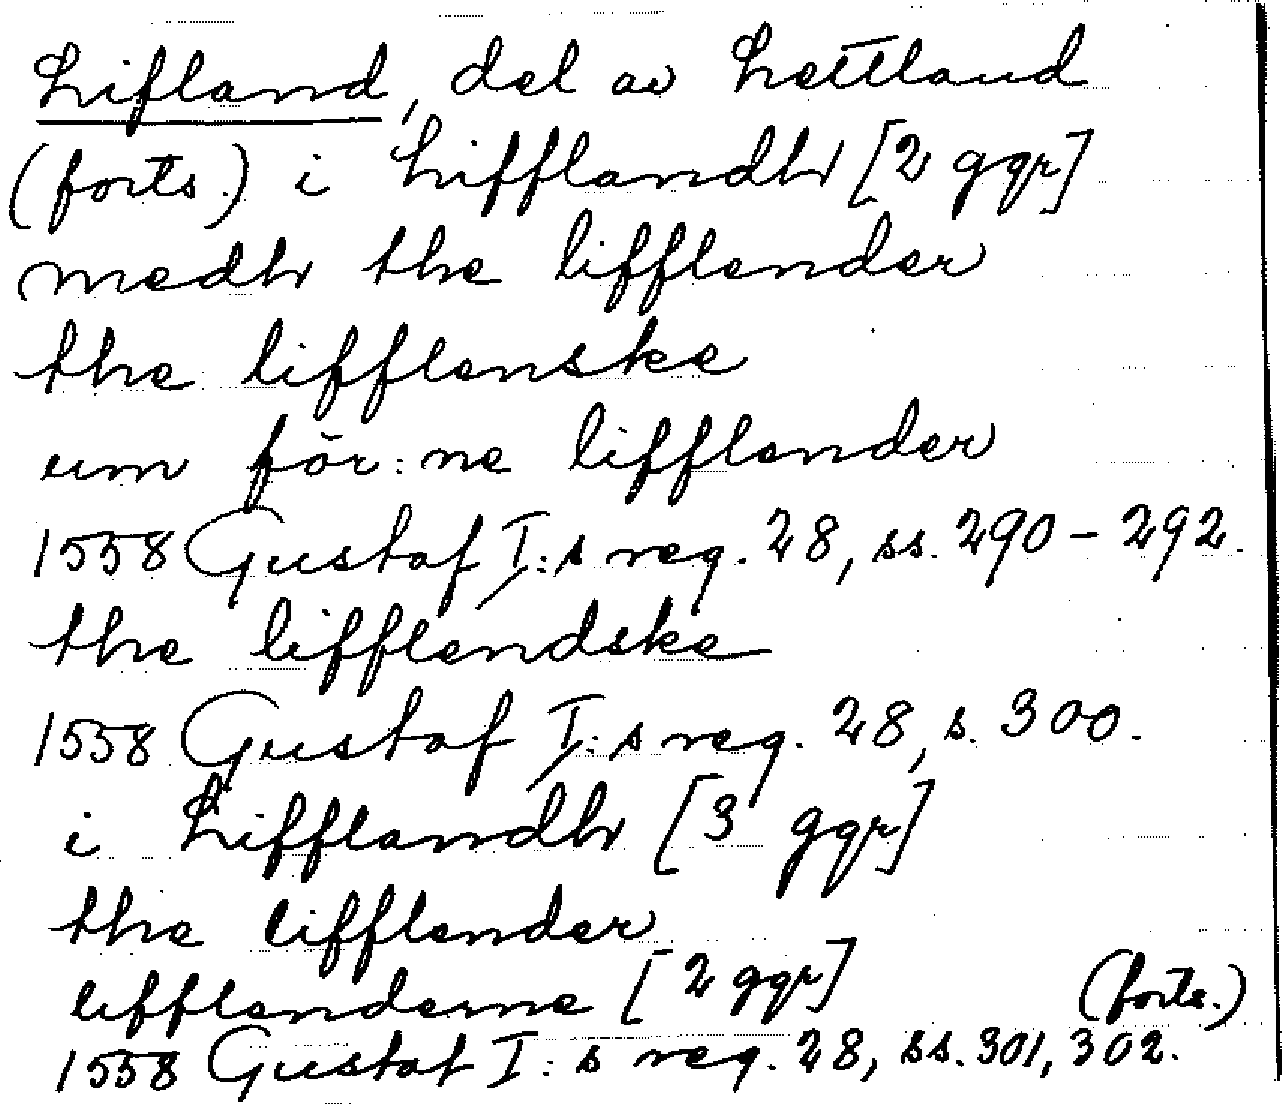 Lifland, del av Lettland
(forts.) i Lifflandh [2 ggr]
medh the lifflender
the lifflenske
um för:ne lifflender
1558 Gustaf I:s reg. 28, ss. 290-292.
the lifflendske
1558 Gustaf I:s reg. 28, s. 300.
i Lifflandh [3 ggr]
the lifflender
lifflenderne [2 ggr] (forts.)
1558 Gustaf I:s reg. 28, ss. 301, 302.